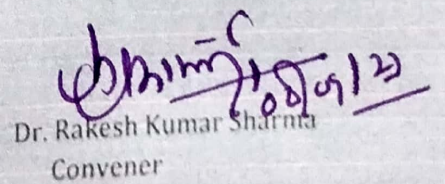 Dr. Rakesh Kumar Sharma
Convener